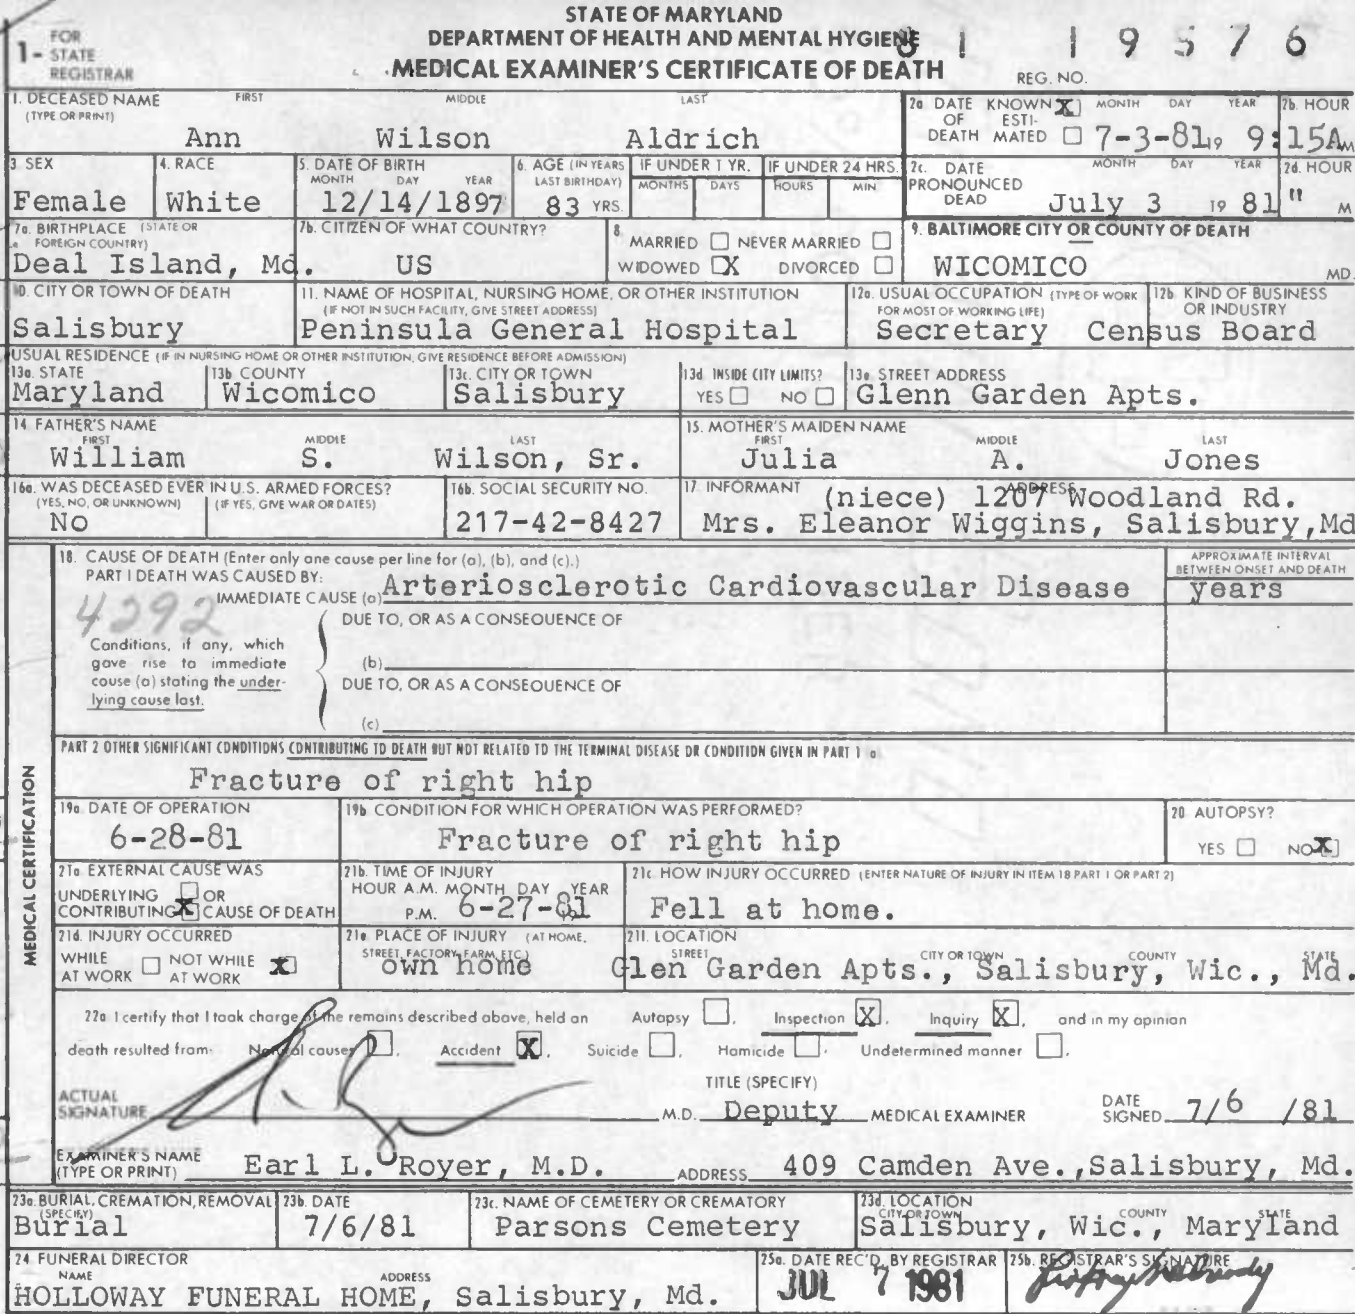 STATE OF MARYLAND
DEPARTMENT OF HEALTH AND MENTAL HYGIENE
MEDICAL EXAMINER'S CERTIFICATE OF DEATH
1- FOR STATE REGISTRAR
81 19576
REG. NO.
1. DECEASED NAME (TYPE OR PRINT) FIRST MIDDLE LAST
Ann Wilson Aldrich
2a DATE OF DEATH KNOWN X ESTIMATED MONTH DAY YEAR 2b. HOUR
7-3-81 19 9:15A M
3. SEX 4. RACE 5. DATE OF BIRTH MONTH DAY YEAR 6. AGE (IN YEARS LAST BIRTHDAY) IF UNDER 1 YR. MONTHS DAYS IF UNDER 24 HRS. HOURS MIN
Female White 12/14/1897 83 YRS.
2c. DATE PRONOUNCED DEAD MONTH DAY YEAR 2d. HOUR
July 3 19 81 " M
7a. BIRTHPLACE (STATE OR FOREIGN COUNTRY) 7b. CITIZEN OF WHAT COUNTRY?
Deal Island, Md. US
8 MARRIED NEVER MARRIED
WIDOWED X DIVORCED
9. BALTIMORE CITY OR COUNTY OF DEATH
WICOMICO MD.
10. CITY OR TOWN OF DEATH
Salisbury
11. NAME OF HOSPITAL, NURSING HOME, OR OTHER INSTITUTION
(IF NOT IN SUCH FACILITY, GIVE STREET ADDRESS)
Peninsula General Hospital
12a. USUAL OCCUPATION (TYPE OF WORK FOR MOST OF WORKING LIFE)
Secretary
12b. KIND OF BUSINESS OR INDUSTRY
Census Board
USUAL RESIDENCE (IF IN NURSING HOME OR OTHER INSTITUTION, GIVE RESIDENCE BEFORE ADMISSION)
13a. STATE 13b COUNTY 13c. CITY OR TOWN 13d INSIDE CITY LIMITS? 13e. STREET ADDRESS
Maryland Wicomico Salisbury YES NO Glenn Garden Apts.
14 FATHER'S NAME FIRST MIDDLE LAST
William S. Wilson, Sr.
15. MOTHER'S MAIDEN NAME FIRST MIDDLE LAST
Julia A. Jones
16a. WAS DECEASED EVER IN U.S. ARMED FORCES?
(YES, NO, OR UNKNOWN) (IF YES, GIVE WAR OR DATES)
No
16b. SOCIAL SECURITY NO.
217-42-8427
17 INFORMANT ADDRESS
(niece) 1207 Woodland Rd.
Mrs. Eleanor Wiggins, Salisbury, Md
MEDICAL CERTIFICATION
18. CAUSE OF DEATH (Enter only one cause per line for (a), (b), and (c).)
APPROXIMATE INTERVAL BETWEEN ONSET AND DEATH
PART I DEATH WAS CAUSED BY:
IMMEDIATE CAUSE (a) Arteriosclerotic Cardiovascular Disease years
4292
DUE TO, OR AS A CONSEQUENCE OF
Conditions, if any, which
gave rise to immediate
cause (a) stating the under-
lying cause last.
(b)
DUE TO, OR AS A CONSEQUENCE OF
(c)
PART 2 OTHER SIGNIFICANT CONDITIONS CONTRIBUTING TO DEATH BUT NOT RELATED TO THE TERMINAL DISEASE OR CONDITION GIVEN IN PART 1 a
Fracture of right hip
19a. DATE OF OPERATION 19b CONDITION FOR WHICH OPERATION WAS PERFORMED? 20 AUTOPSY?
6-28-81 Fracture of right hip YES NO X
21a EXTERNAL CAUSE WAS
UNDERLYING OR
CONTRIBUTING X CAUSE OF DEATH
21b. TIME OF INJURY
HOUR A.M. MONTH DAY YEAR
P.M. 6-27-81 19
21c HOW INJURY OCCURRED (ENTER NATURE OF INJURY IN ITEM 18 PART 1 OR PART 2)
Fell at home.
21d. INJURY OCCURRED
WHILE AT WORK NOT WHILE AT WORK X
21e. PLACE OF INJURY (AT HOME, STREET, FACTORY, FARM, ETC.)
own home
21f. LOCATION STREET CITY OR TOWN COUNTY STATE
Glen Garden Apts., Salisbury, Wic., Md.
22a I certify that I took charge of the remains described above, held an Autopsy , Inspection X , Inquiry X , and in my opinion
death resulted from: Natural causes , Accident X , Suicide , Homicide , Undetermined manner .
TITLE (SPECIFY)
ACTUAL SIGNATURE M.D. Deputy MEDICAL EXAMINER DATE SIGNED 7/6 /81
EXAMINER'S NAME (TYPE OR PRINT) Earl L. Royer, M.D. ADDRESS 409 Camden Ave., Salisbury, Md.
23a. BURIAL, CREMATION, REMOVAL (SPECIFY) 23b. DATE 23c. NAME OF CEMETERY OR CREMATORY 23d. LOCATION CITY OR TOWN COUNTY STATE
Burial 7/6/81 Parsons Cemetery Salisbury, Wic., Maryland
24 FUNERAL DIRECTOR NAME ADDRESS
HOLLOWAY FUNERAL HOME, Salisbury, Md.
25a. DATE REC'D. BY REGISTRAR
JUL 7 1981
25b. REGISTRAR'S SIGNATURE